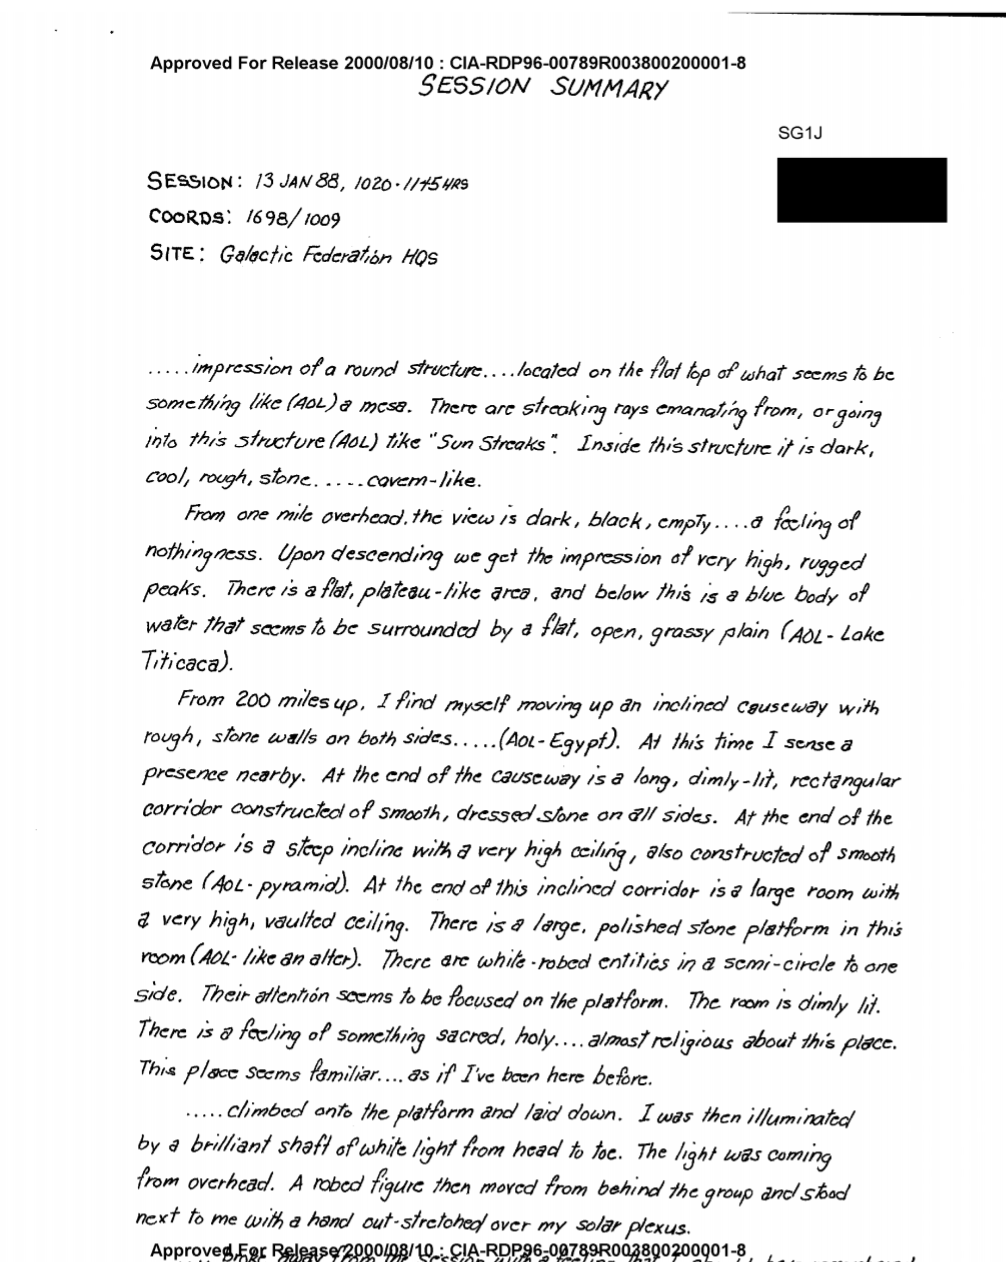 Approved For Release 2000/08/10 : CIA-RDP96-00789R003800200001-8
SESSION SUMMARY
SG1J
SESSION: 13 JAN 88, 1020-1145 HRS
COORDS: 1698/1009
SITE: Galactic Federation HQS
.....impression of a round structure....located on the flat top of what seems to be
something like (AOL) a mesa. There are streaking rays emanating from, or going
into this structure (AOL) like "Sun Streaks". Inside this structure it is dark,
cool, rough, stone.....cavern-like.
From one mile overhead, the view is dark, black, empty....a feeling of
nothingness. Upon descending we get the impression of very high, rugged
peaks. There is a flat, plateau-like area, and below this is a blue body of
water that seems to be surrounded by a flat, open, grassy plain (AOL- Lake
Titicaca).
From 200 miles up, I find myself moving up an inclined causeway with
rough, stone walls on both sides.....(AOL-Egypt). At this time I sense a
presence nearby. At the end of the causeway is a long, dimly-lit, rectangular
corridor constructed of smooth, dressed stone on all sides. At the end of the
corridor is a steep incline with a very high ceiling, also constructed of smooth
stone (AOL- pyramid). At the end of this inclined corridor is a large room with
a very high, vaulted ceiling. There is a large, polished stone platform in this
room (AOL- like an alter). There are white-robed entities in a semi-circle to one
side. Their attention seems to be focused on the platform. The room is dimly lit.
There is a feeling of something sacred, holy....almost religious about this place.
This place seems familiar....as if I've been here before.
.....climbed onto the platform and laid down. I was then illuminated
by a brilliant shaft of white light from head to toe. The light was coming
from overhead. A robed figure then moved from behind the group and stood
next to me with a hand out-stretched over my solar plexus.
Approved For Release 2000/08/10 : CIA-RDP96-00789R003800200001-8